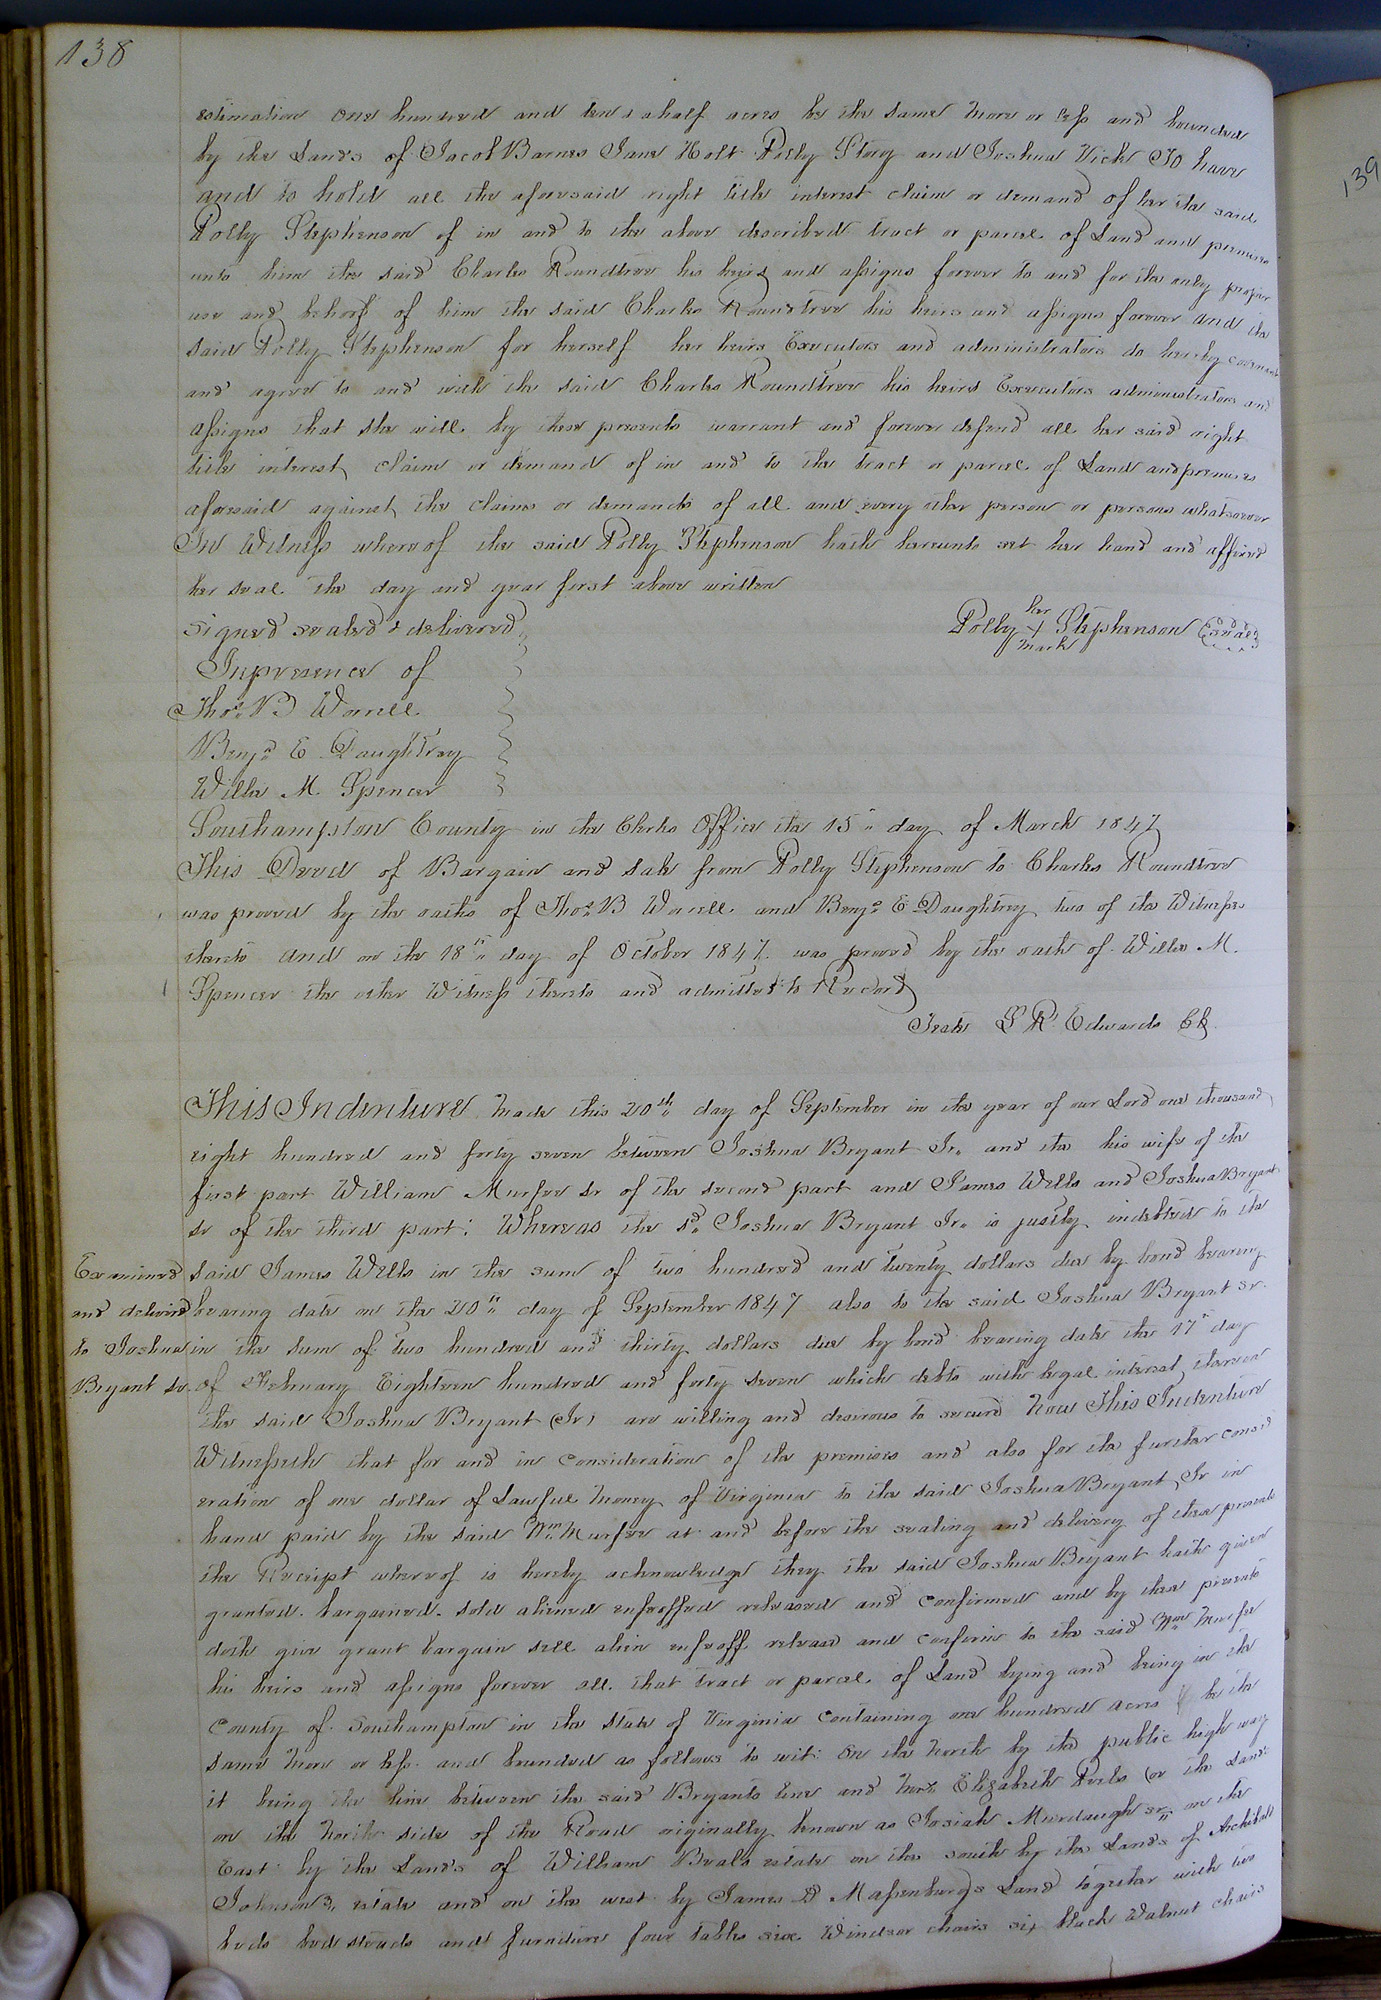 138
139
estimation one hundred and ten & a half acres be the same more or less and bounded
by the Lands of Jacob Barnes Jane Holt Polly Story and Joshua Vick To have
and to hold all the aforesaid right title interest claim or demand of her the said
Polly Stephenson of in and to the above described tract or parcel of Land and premises
unto him the said Charles Roundtree his heirs and assigns forever to and for the only proper
use and behoof of him the said Charles Roundtree his heirs and assigns forever and the
said Polly Stephenson for herself her heirs Executors and administrators do hereby covenant
and agree to and with the said Charles Roundtree his heirs Executors administrators and
assigns that she will by these presents warrant and forever defend all her said right
title interest claim or demand of in and to the tract or parcel of Land and premises
aforesaid against the claims or demands of all and every other person or persons whatsoever
In Witness whereof the said Polly Stephenson hath hereunto set her hand and affixed
her seal the day and year first above written
Signed sealed & delivered
In presence of
Thos. B Worrell
Benja. E Daughtrey
Willie M. Spencer
her
Polly + Stephenson (seal)
mark
Southampton County in the Clerks Office the 15" day of March 1847
This Deed of Bargain and sale from Polly Stephenson to Charles Roundtree
was proved by the oaths of Thos. B Worrell and Benja. E Daughtrey two of the Witnesses
thereto and on the 18th day of October 1847 was proved by the oath of Willie M.
Spencer the other Witness thereto and admitted to Record
Teste L R Edwards Ck.
This Indenture made this 20th day of September in the year of our Lord one thousand
eight hundred and forty seven between Joshua Bryant Jr. and the his wife of the
first part William Murfee Sr of the second part and James Wells and Joshua Bryant
Sr of the third part: Whereas the sd. Joshua Bryant Jr. is justly indebted to the
said James Wells in the sum of two hundred and twenty dollars due by bond bearing
bearing date on the 20th day of September 1847 also to the said Joshua Bryant Sr.
in the sum of two hundred and thirty dollars due by bond bearing date the 17" day
of February Eighteen hundred and forty seven which debts with legal interest thereon
the said Joshua Bryant (Jr) are willing and desirous to secure Now This Indenture
Witnesseth that for and in consideration of the premises and also for the further consid
eration of one dollar of Lawful money of Virginia to the said Joshua Bryant Jr in
hand paid by the said Wm Murfee at and before the sealing and delivery of these presents
the Receipt whereof is hereby acknowledge they the said Joshua Bryant hath given
granted. bargained. sold aliened enfeoffed released and confirmed and by these presents
doth give grant bargain sell alien enfeoff release and confirm to the said Wm Murfee
his heirs and assigns forever all that tract or parcel of Land lying and being in the
County of Southampton in the state of Virginia containing one hundred acres be the
same more or less and bounded as follows to wit: On the North by the public high way
it being the line between the said Bryants line and Mrs. Elizabeth (or the Lands
on the North side of the Road originally known as Josiah Murdaugh sr. on the
East by the Lands of William Beals estate on the south by the Lands of Archibald
Johnson's estate and on the west by James D Massenburgs Land together with two
beds bed steads and furniture four tables six Windsor chairs six black Walnut chairs
Examined
and deliverd
to Joshua
Bryant Sr.